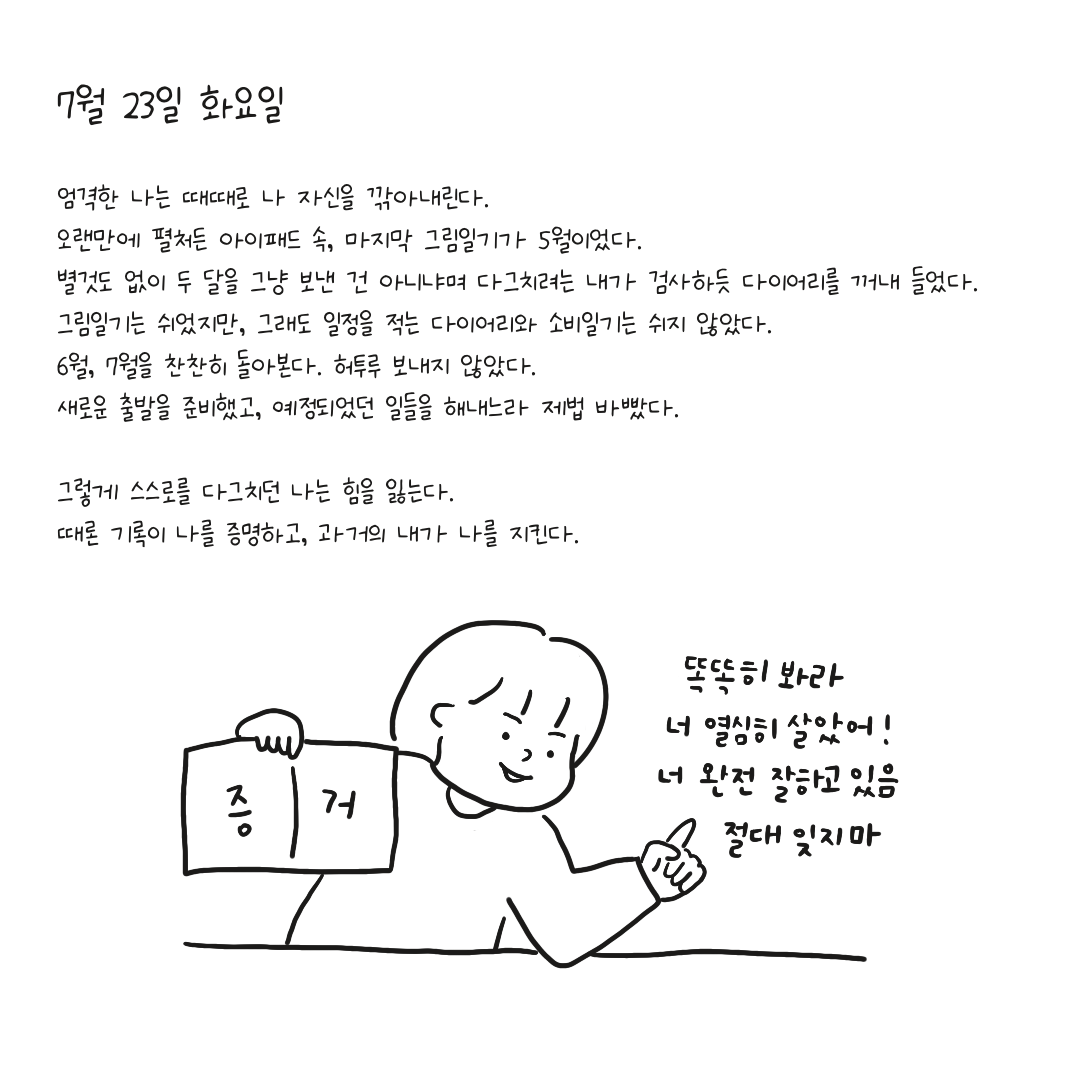 7월 23일 화요일
엄격한 나는 때때로 나 자신을 깎아내린다.
오랜만에 펼쳐든 아이패드 속, 마지막 그림일기가 5월이었다.
별것도 없이 두 달을 그냥 보낸 건 아니냐며 다그치려는 내가 검사하듯 다이어리를 꺼내 들었다.
그림일기는 쉬었지만, 그래도 일정을 적는 다이어리와 소비일기는 쉬지 않았다.
6월, 7월을 찬찬히 돌아본다. 허투루 보내지 않았다.
새로운 출발을 준비했고, 예정되었던 일들을 해내느라 제법 바빴다.
그렇게 스스로를 다그치던 나는 힘을 잃는다.
때론 기록이 나를 증명하고, 과거의 내가 나를 지킨다.
똑똑히 봐라
너 열심히 살았어!
너 완전 잘하고 있음
절대 잊지마
증 거